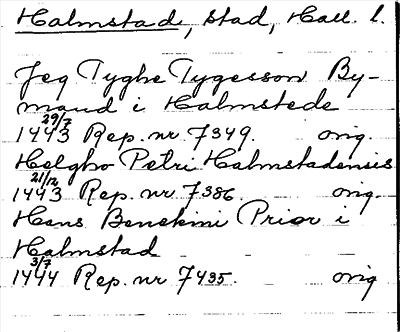 Halmstad, stad, Hall. l.
Jeg Tyghe Tygesson By-
mand i Halmstede
29/7
1443 Rep. nr 7349. orig.
Helgho Petri Halmstadensis
21/12
1443 Rep. nr 7386. orig.
Hans Benekini Prior i
Halmstad
3/7
1444 Rep. nr 7435. orig